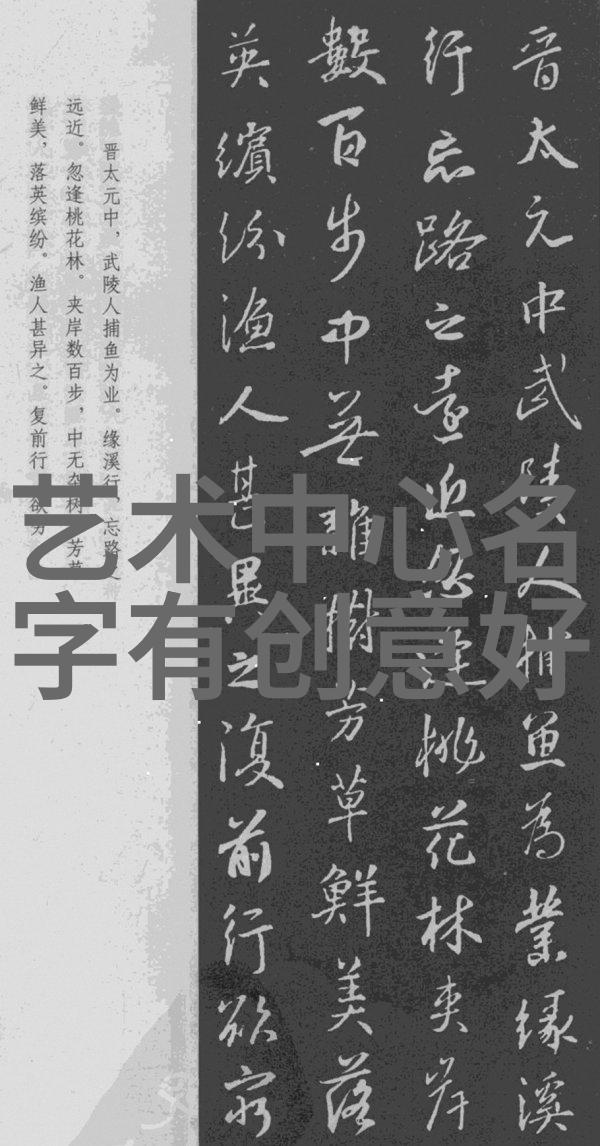 晋太元中武陵人捕鱼为業缘溪
行忘路之遠近忽逢桃花林夹岸
數百步中無雜樹芳草鮮美落
英繽紛渔人甚異之復前行欲穷
晋太元中，武陵人捕鱼为业。缘溪行，忘路之
远近。忽逢桃花林。夹岸数百步，中无杂树，芳草
鲜美，落英缤纷。渔人甚异之。复前行，欲穷
艺术中心名
字有创意好